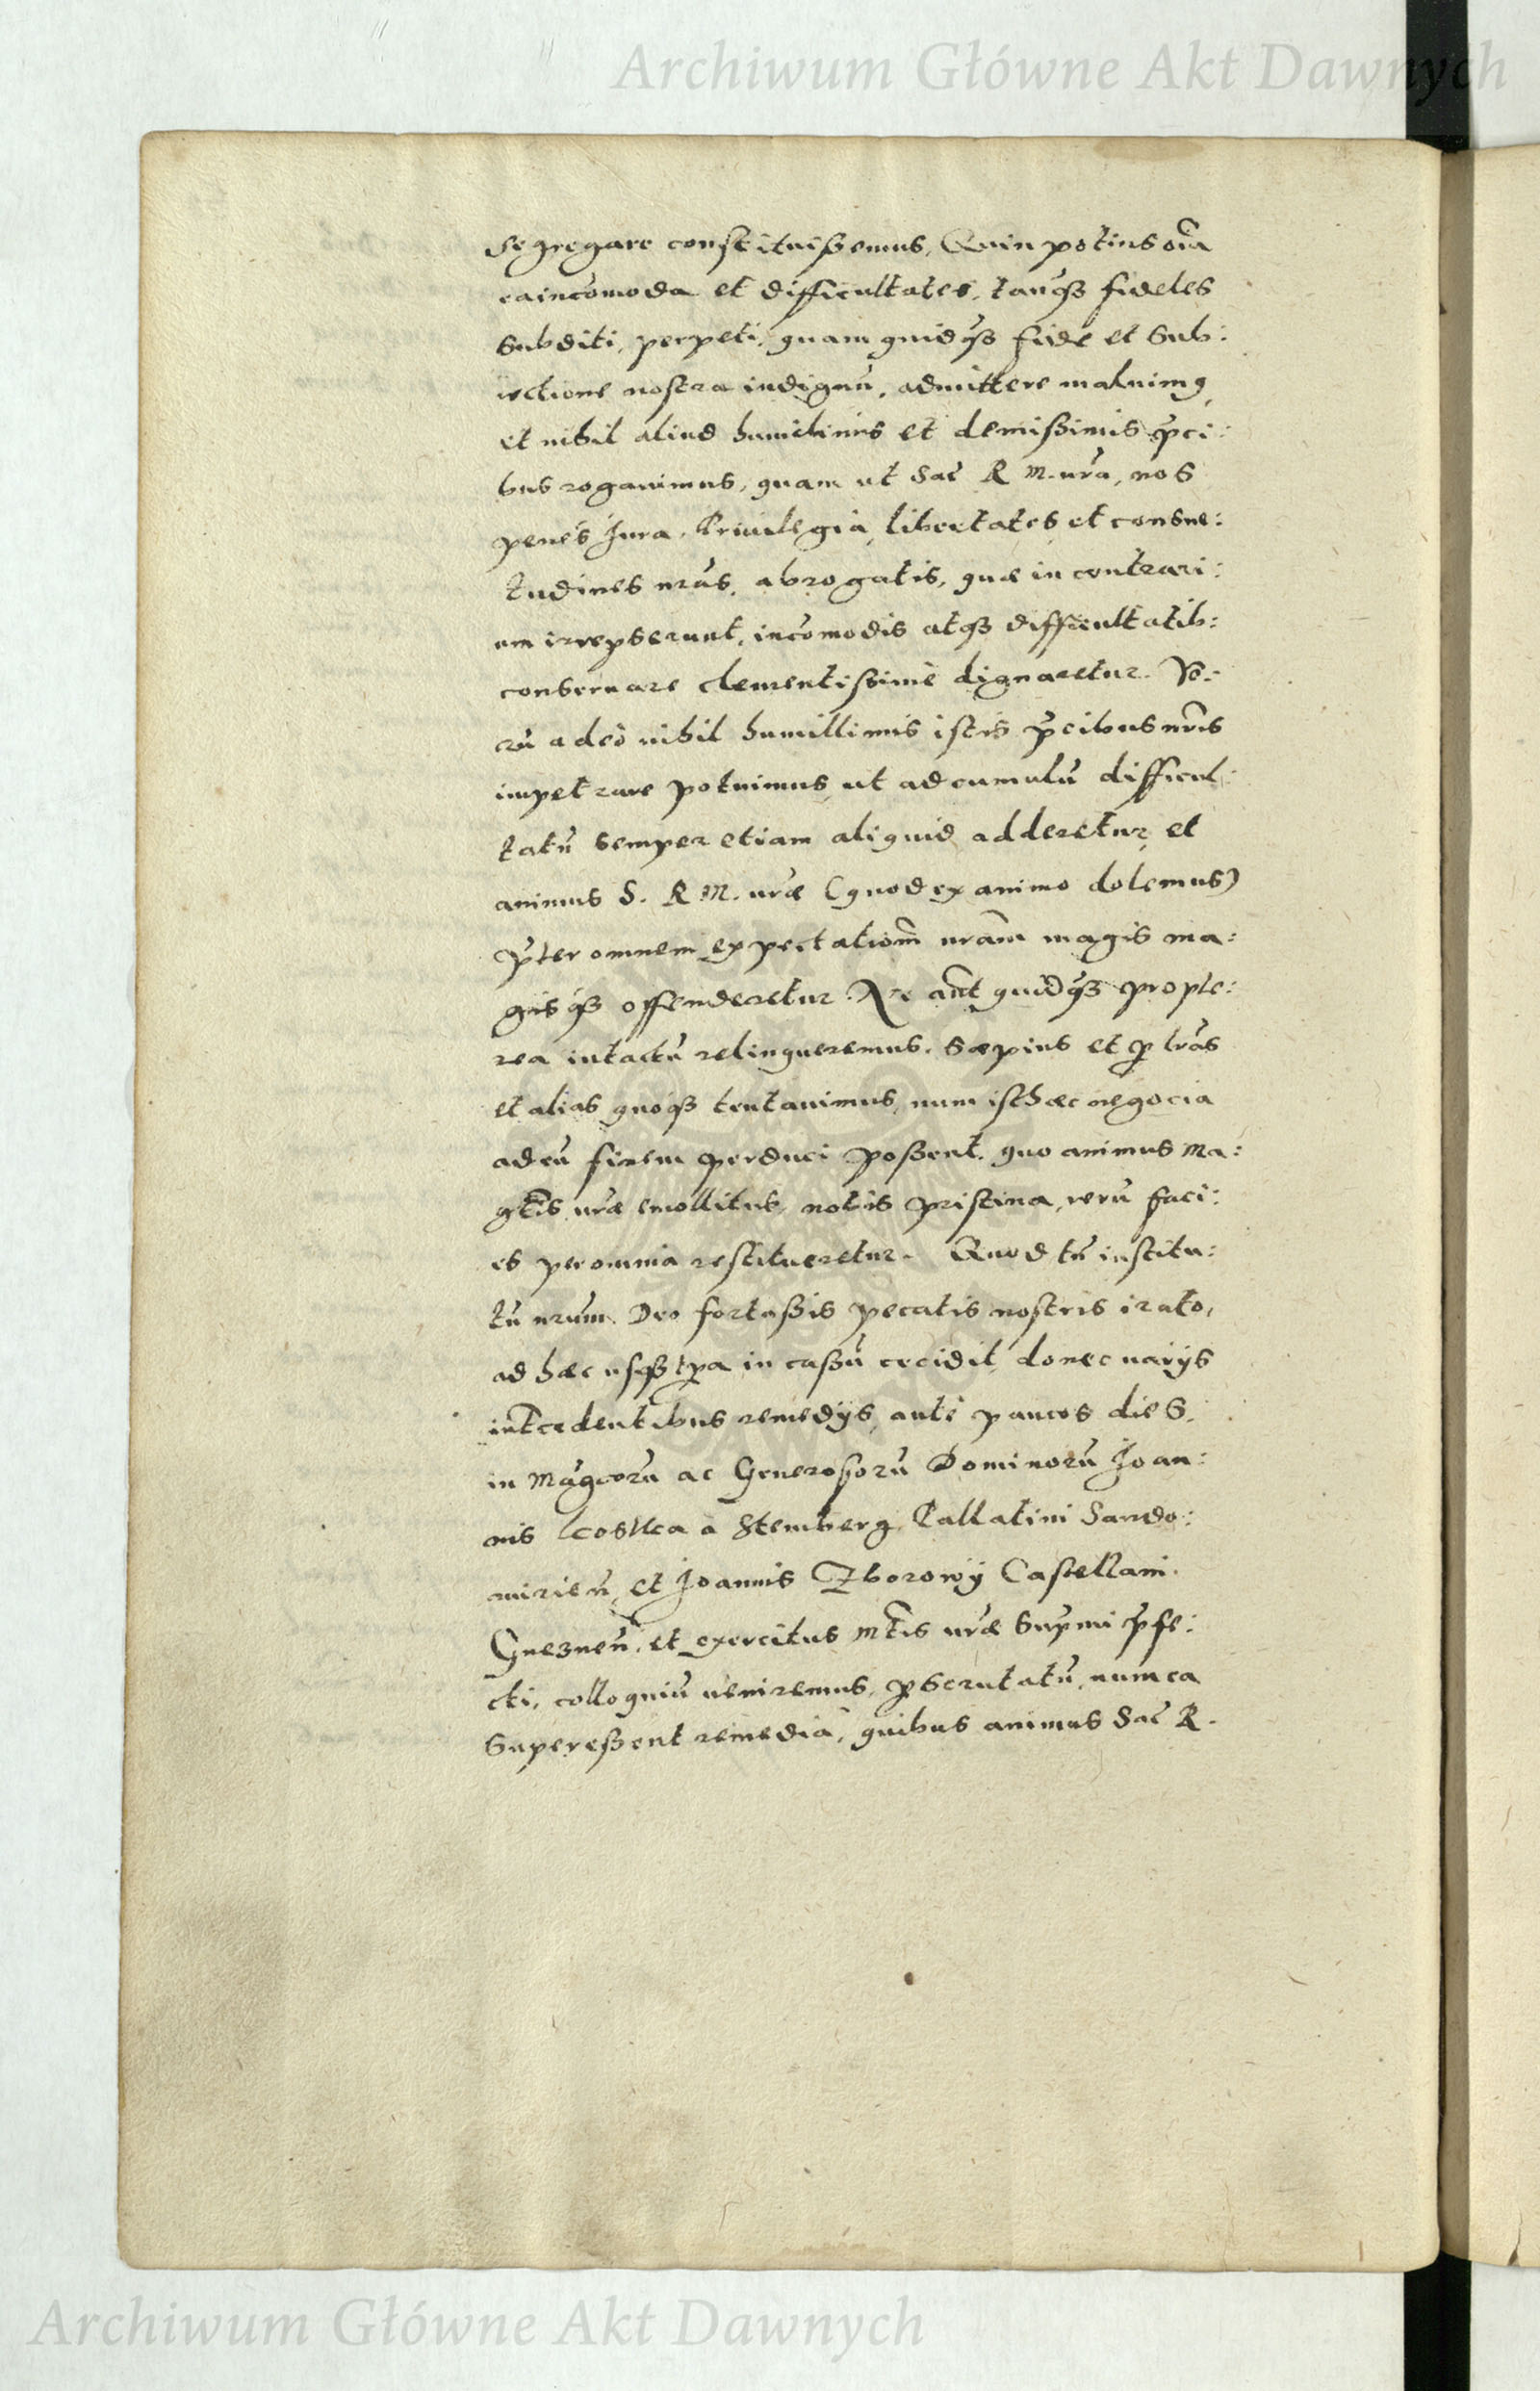 Archiwum Główne Akt Dawnych
segregare constituissemus, Quin potius oĩa
ea incõmoda et difficultates, tanqȝ fideles
subditi, perpeti, quam quidqȝ fide et sub:
iectione nostra indignũ, admittere maluimꝰ,
et nihil aliud humilimis et demissimis p̃ci:
bus rogauimus, quam ut Sac̃ R M. vr̃a, nos
penes Jura, Priuilegia, libertates et consue:
tudines nr̃as, abrogatis, quæ in contrari:
um irrepserunt, incõmodis atqȝ difficultatib:
conseruare clementissime dignaretur. Ve:
rũ adeò nihil humillimis istis p̃cibus nr̃is
impetrare potuimus, ut ad cumulũ difficul:
tatũ semper etiam aliquid adderetur, et
animus S. R M. vr̃æ (quod ex animo dolemus)
p̃ter omnem expectatiom̃ nr̃am magis ma:
gisqȝ offenderetur. Ne aũt quidqȝ propte:
rea intactũ relinqueremus, sæpius et ꝑ lr̃as
et alias quoqȝ tentauimus, num isthæc negocia
ad eũ finem perduci possent, quo animus Ma:
gt̃is vr̃æ emollitus, nobis pristina, rerũ faci:
es per omnia restitueretur. Quod tñ institu:
tũ nr̃um, Deo fortassis pecatis nostris irato,
ad hæc usqȝ tꝑa in cassũ cecidit, donec uarijs
int̃cedentibus remedijs, ante paucos dies,
in Mag̃corũ ac Generosorũ Dominorũ Joan:
nis Costka a Stemberg, Pallatini Sando:
mirieñ, et Joannis Zborowy Castellani
Gnezneñ, et exercitus Mt̃is vr̃æ Sup̃mi p̃fe:
cti, colloquiũ ueniremus, ꝑscrutatũ, num ea
superessent remedia, quibus animus Sac̃ R.
Archiwum Główne Akt Dawnych